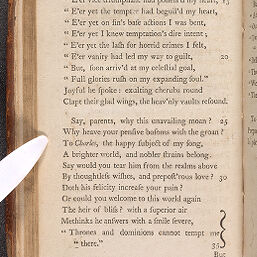 " E'er yet the tempter had beguil'd my heart,
" E'er yet on sin's base actions I was bent,
" E'er yet I knew temptation's dire intent ;
" E'er yet the lash for horrid crimes I felt,
" E'er vanity had led my way to guilt, 20
" But, soon arriv'd at my celestial goal,
" Full glories rush on my expanding soul."
Joyful he spoke : exulting cherubs round
Clapt their glad wings, the heav'nly vaults resound.
Say, parents, why this unavailing moan ? 25
Why heave your pensive bosoms with the groan ?
To Charles, the happy subject of my song,
A brighter world, and nobler strains belong.
Say would you tear him from the realms above
By thoughtless wishes, and prepost'rous love ? 30
Doth his felicity increase your pain ?
Or could you welcome to this world again
The heir of bliss ? with a superior air
Methinks he answers with a smile severe,
" Thrones and dominions cannot tempt me
" there." 35
But